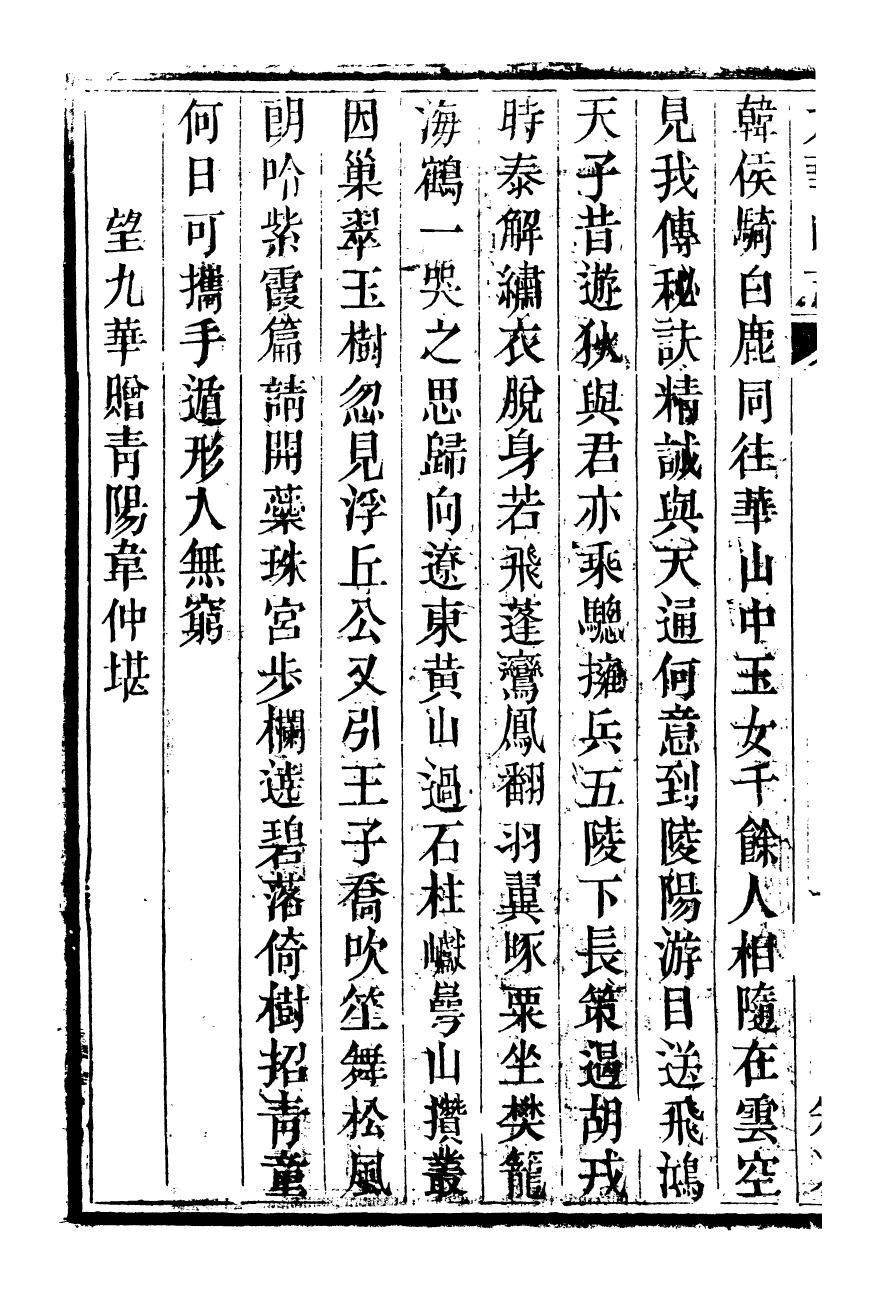 韓侯騎白鹿同往華山中玉女千餘人相隨在雲空
見我傳秘訣精誠與天通何意到陵陽游目送飛鴻
天子昔遊狄與君亦乘驄擁兵五陵下長策遏胡戎
時泰解繡衣脫身若飛蓬鸞鳳翻羽翼啄粟坐樊籠
海鶴一哭之思歸向遼東黃山過石柱巘崿山攢叢
因巢翠玉樹忽見浮丘公又引王子喬吹笙舞松風
朗吟紫霞篇請開蘂珠宮步欄遶碧落倚樹招青童
何日可攜手遁形入無窮
望九華贈青陽韋仲堪